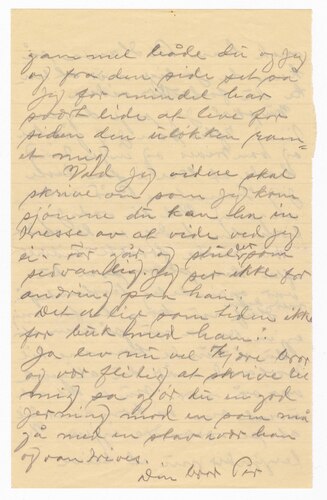 gammel både du og jeg
og fra den side set på
jeg for min del har
svært lide at leve for
siden den ulokken ram-
t mig
Vad jeg vidure skal
skrive om som jeg kan
du kan ha in
tresse av at vide ved jeg
ei. Far går og
sedvanlig. Jeg ser ikke for
andring paa han.
Det er lige som tiden ikke
for buk med ham.
Ja lev nu vel Kjære bror
og vær flitig at skrive til
mig, så gjør du en god
jerning mod en som må
gå med en stav hvor han
og vandrives.
Din bror Per